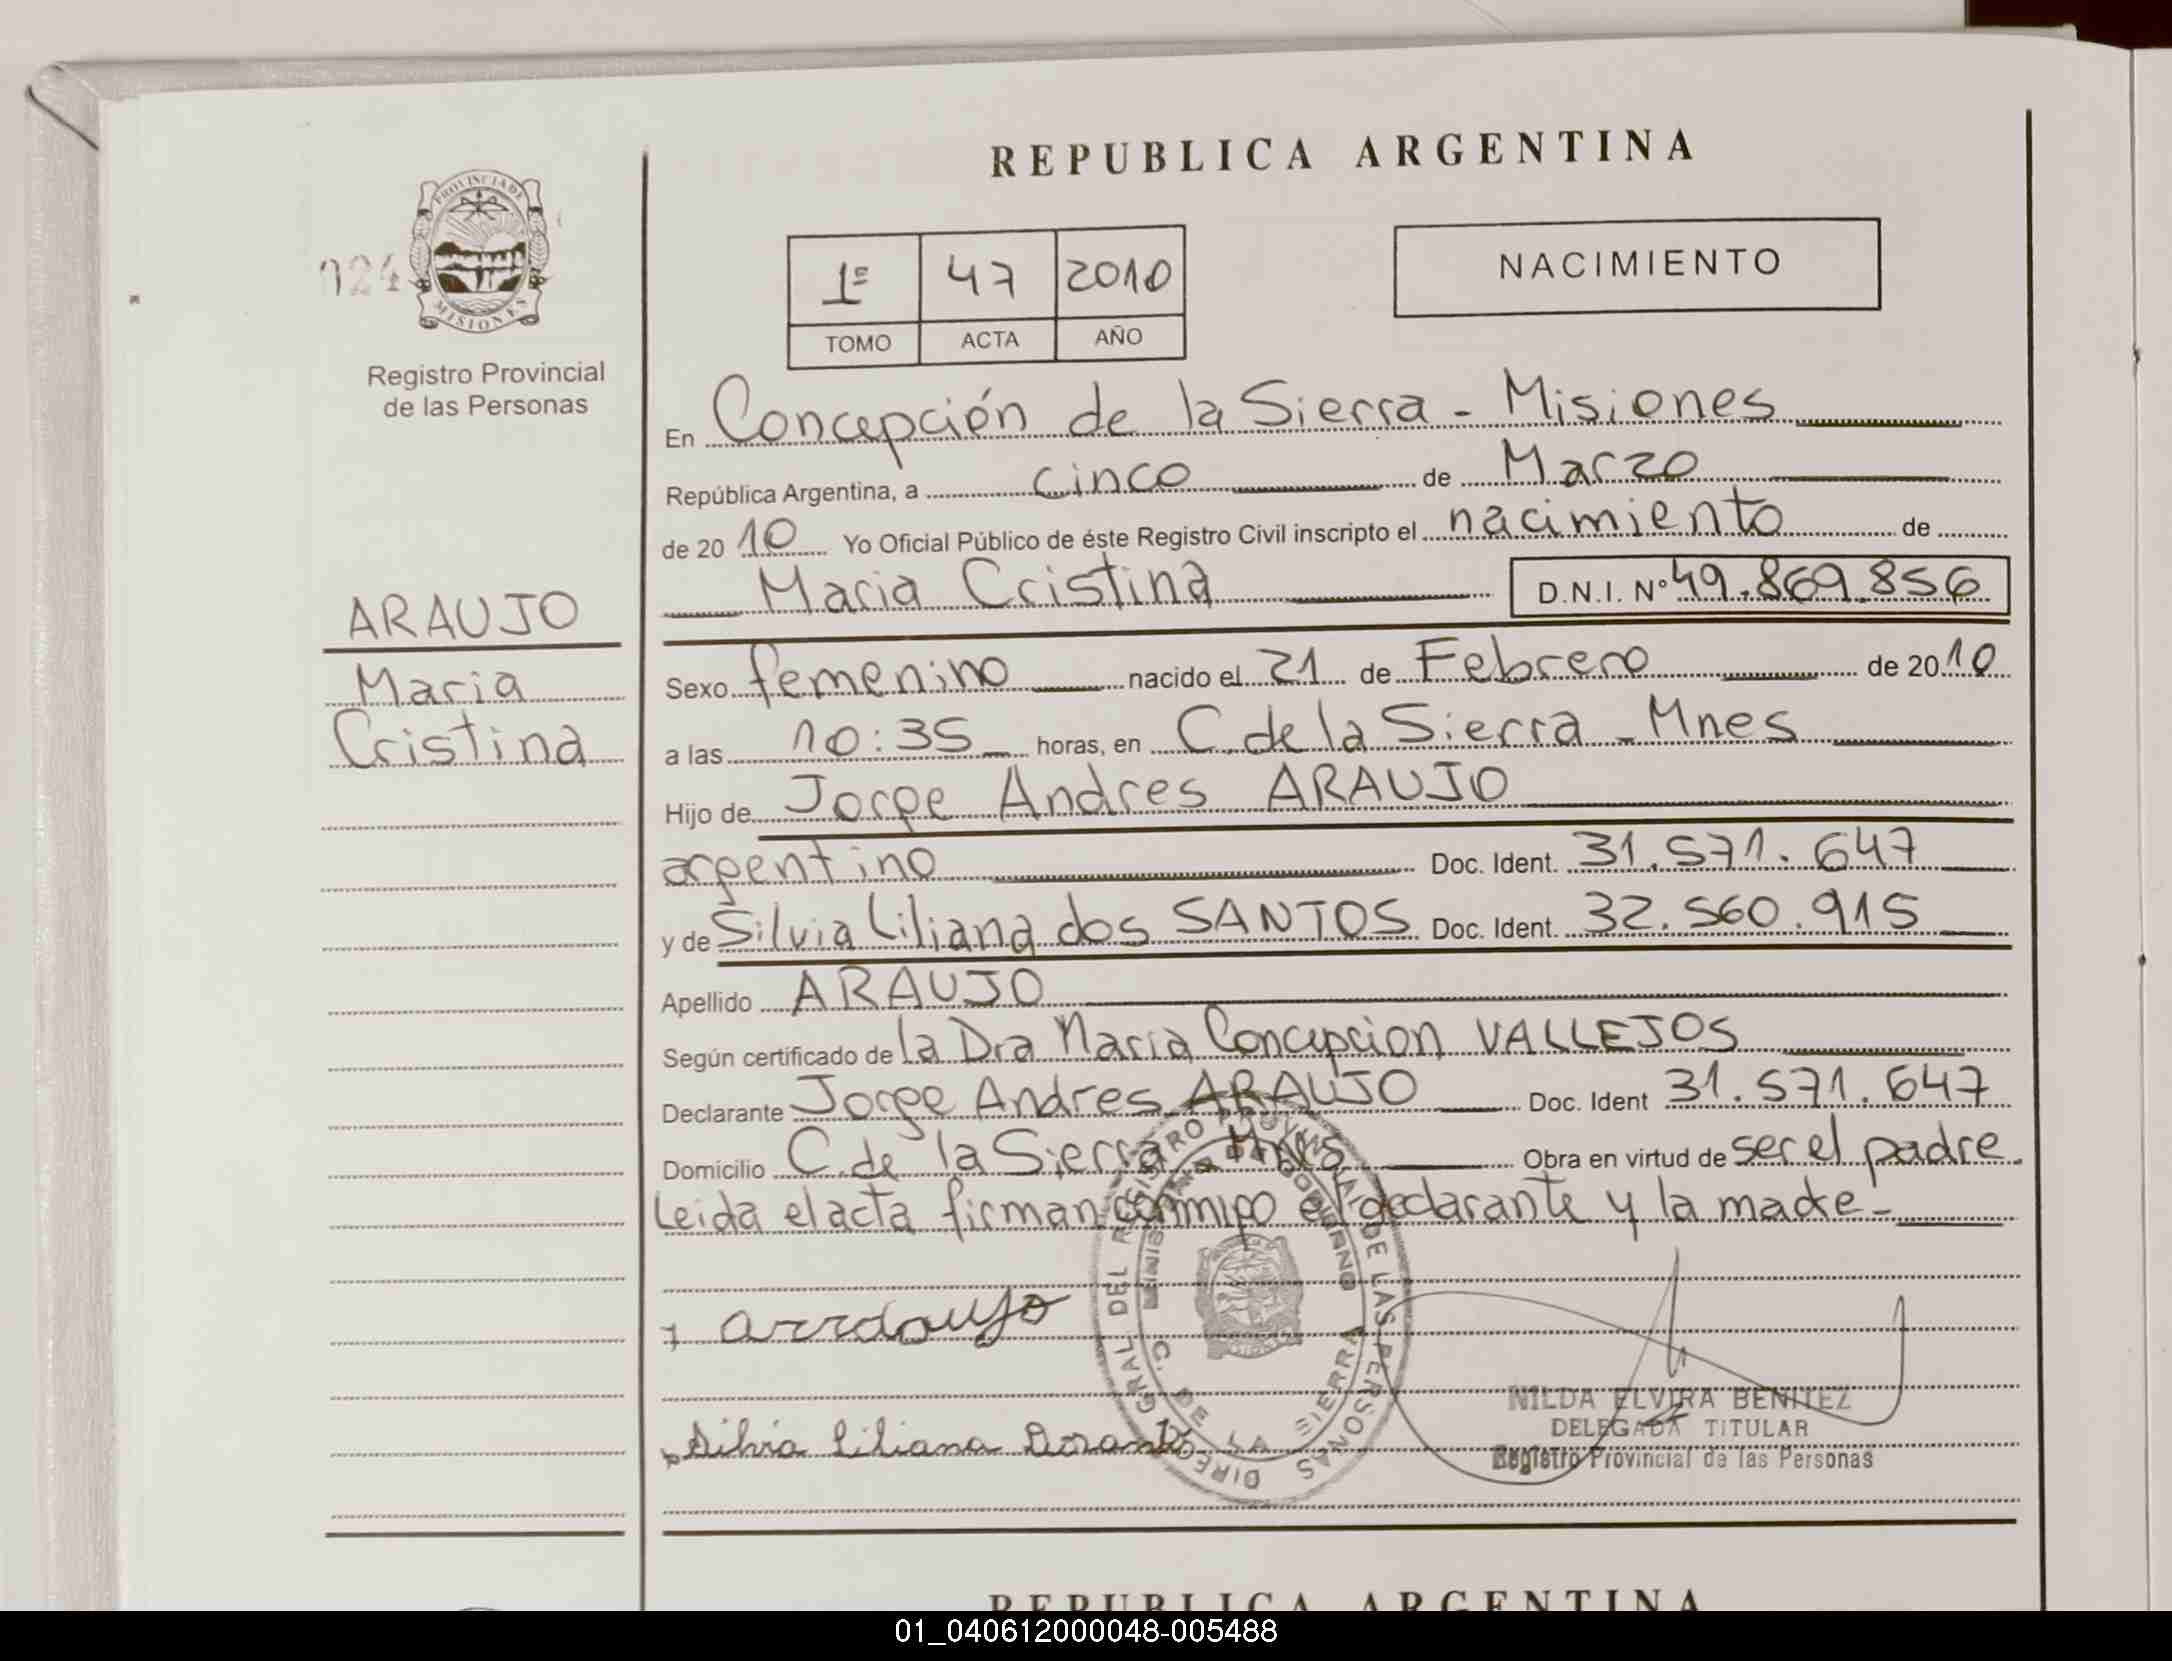 REPUBLICA ARGENTINA
PROVINCIA DE
MISIONES
024
Registro Provincial
de las Personas
1º 47 2010
TOMO ACTA AÑO
NACIMIENTO
En Concepción de la Sierra - Misiones
República Argentina, a cinco de Marzo
de 2010 Yo Oficial Público de éste Registro Civil inscripto el nacimiento de
Maria Cristina D.N.I. Nº 49.869.856
ARAUJO
Maria
Cristina
Sexo femenino nacido el 21 de Febrero de 2010
a las 10:35 horas, en C. de la Sierra - Mnes
Hijo de Jorge Andres ARAUJO
argentino Doc. Ident. 31.571.647
y de Silvia Liliana dos SANTOS Doc. Ident. 32.560.915
Apellido ARAUJO
Según certificado de la Dra Maria Concepcion VALLEJOS
Declarante Jorge Andres ARAUJO Doc. Ident 31.571.647
Domicilio C. de la Sierra - Mnes Obra en virtud de ser el padre.
Leida el acta firman conmigo el declarante y la madre -
DIREC. GRAL DEL REGISTRO PROVINCIAL DE LAS PERSONAS
C. DE LA SIERRA
Silvia Liliana
NILDA ELVIRA BENITEZ
DELEGADA TITULAR
Registro Provincial de las Personas
REPUBLICA ARGENTINA
01_040612000048-005488